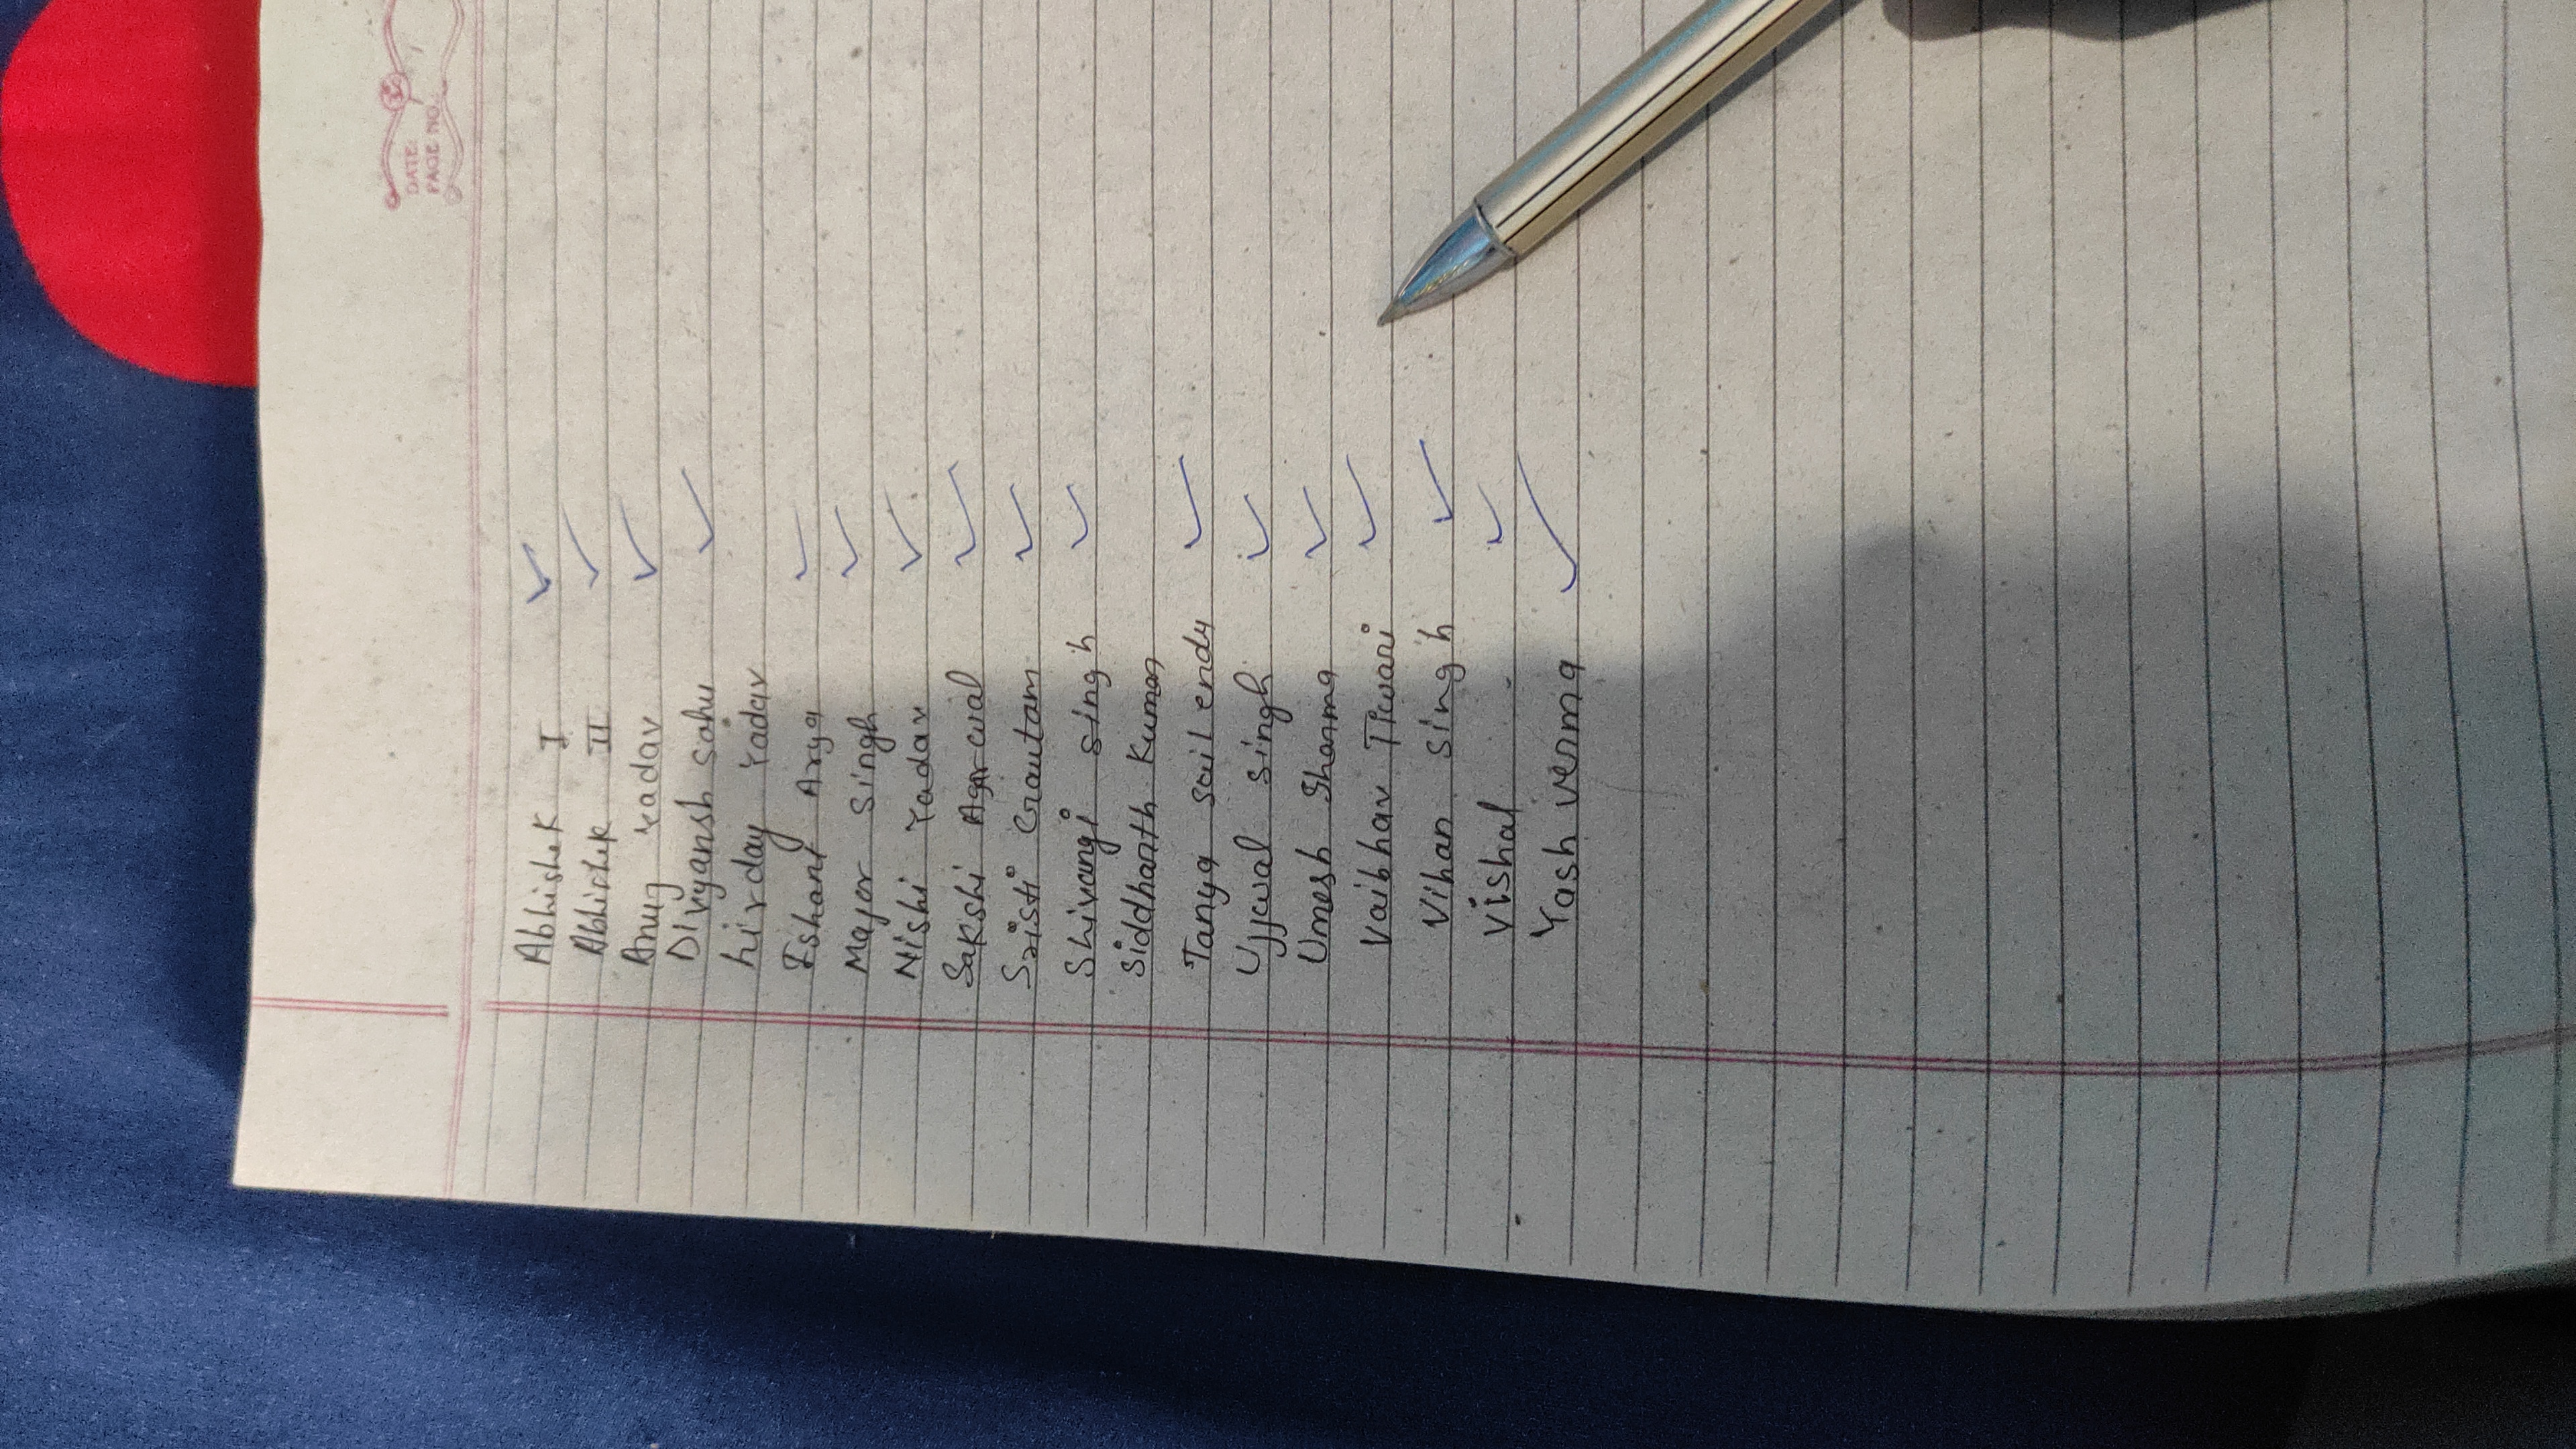 DATE:
PAGE NO.:
Abhishek I ✓
Abhishek II ✓
Anuj Yadav ✓
Divyansh Sahu ✓
hirday Yadav
Ishant Arya ✓
Major Singh ✓
Nishi Yadav ✓
Sakshi Agarwal ✓
Sristi Gautam ✓
Shivangi singh ✓
Siddhanth Kumar
Tanya sailendu ✓
Ujjwal singh ✓
Umesh Sharma ✓
Vaibhav Tiwari ✓
Vihan singh ✓
Vishal ✓
Yash verma ✓